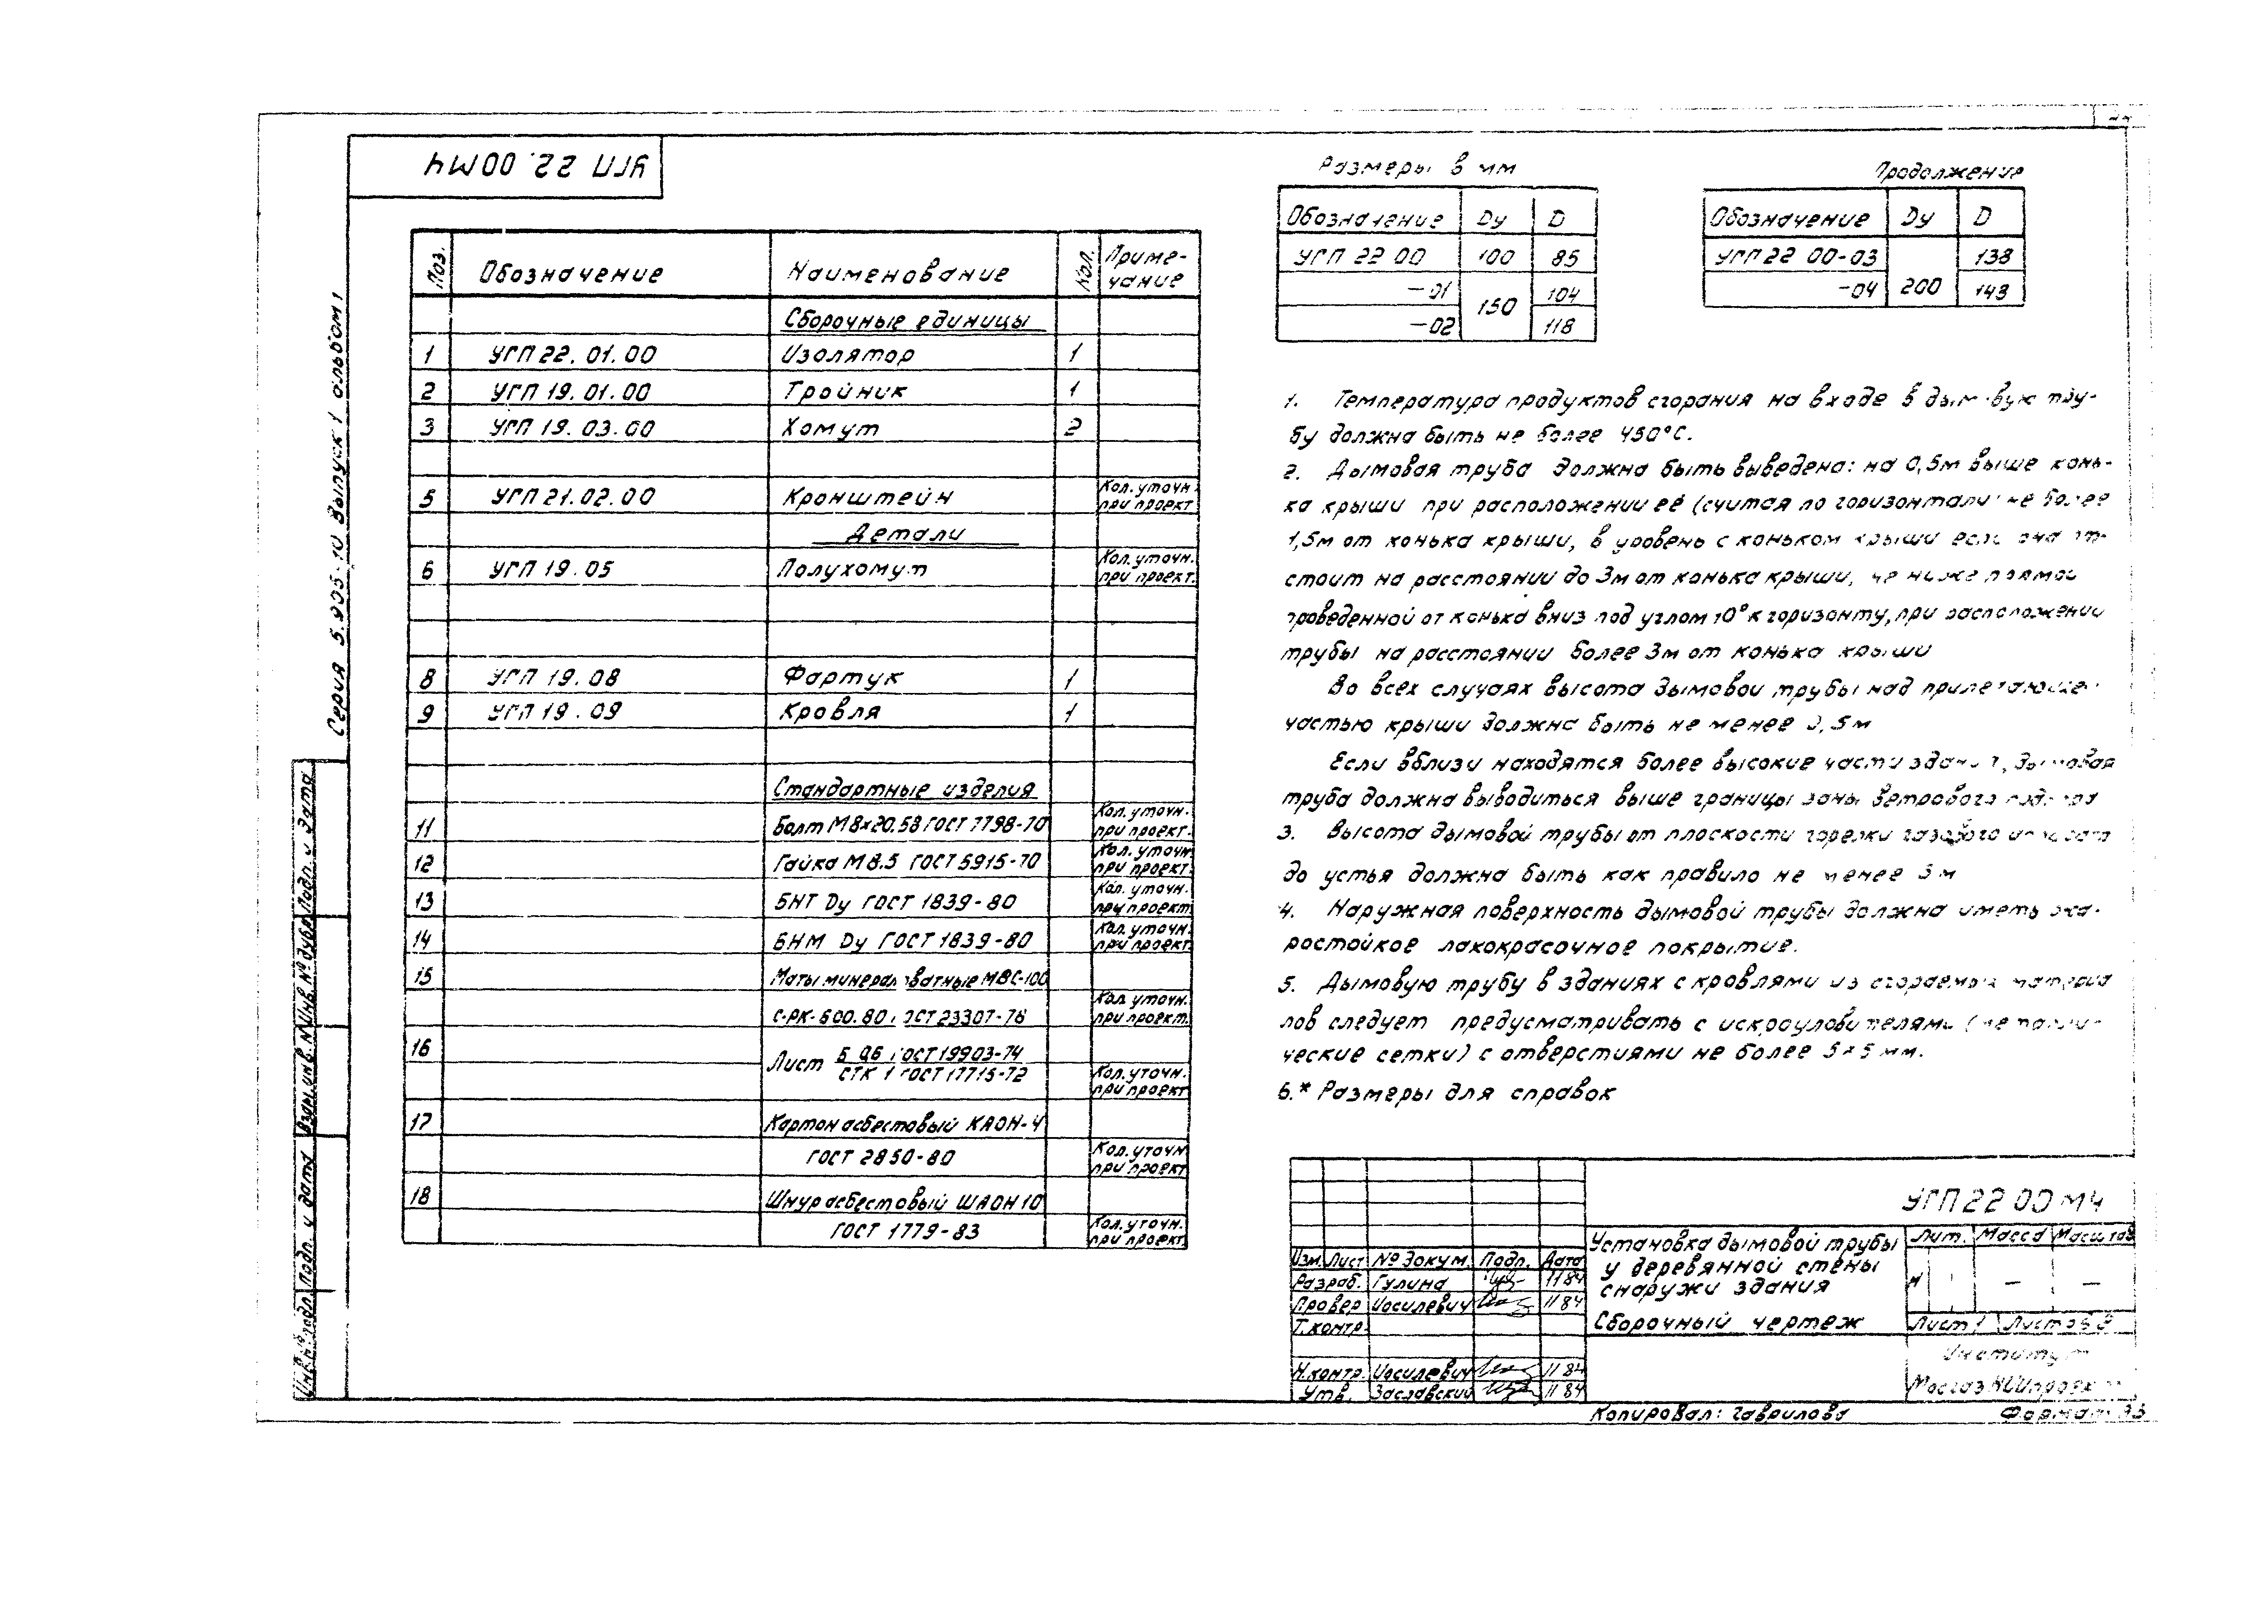 УГП 22.00МЧ
Серия 5.905-10 Выпуск 1 альбом 1
Поз. Обозначение Наименование Кол. Приме-
чание
Сборочные единицы
1 УГП 22.01.00 Изолятор 1
2 УГП 19.01.00 Тройник 1
3 УГП 19.03.00 Хомут 2
5 УГП 21.02.00 Кронштейн Кол. уточн.
при проект.
Детали
6 УГП 19.05 Полухомут Кол. уточн.
при проект.
8 УГП 19.08 Фартук 1
9 УГП 19.09 Кровля 1
Стандартные изделия
11 Болт М8х20.58 ГОСТ 7798-70 Кол. уточн.
при проект.
12 Гайка М8.5 ГОСТ 5915-70 Кол. уточн.
при проект.
13 БНТ Dу ГОСТ 1839-80 Кол. уточн.
при проект.
14 БНМ Dу ГОСТ 1839-80 Кол. уточн.
при проект.
15 Маты минераловатные МВС-100
С-РК-600.80 ГОСТ 23307-78 Кол. уточн.
при проект.
16 Лист Б 0,6 ГОСТ 19903-74
СТК 1 ГОСТ 17715-72 Кол. уточн.
при проект
17 Картон асбестовый КАОН-4
ГОСТ 2850-80 Кол. уточн
при проект
18 Шнур асбестовый ШАОН 10
ГОСТ 1779-83 Кол. уточн.
при проект.
Размеры в мм
Обозначение Dу D
УГП 22 00 100 85
-01 150 104
-02 118
Продолжение
Обозначение Dу D
УГП 22 00-03 200 138
-04 143
1. Температура продуктов сгорания на входе в дымовую тру-
бу должна быть не более 450°С.
2. Дымовая труба должна быть выведена: на 0,5м выше конь-
ка крыши при расположении её (считая по горизонтали) не более
1,5м от конька крыши, в уровень с коньком крыши если она от-
стоит на расстоянии до 3м от конька крыши, не ниже прямой
проведенной от конька вниз под углом 10° к горизонту, при расположении
трубы на расстоянии более 3м от конька крыши
Во всех случаях высота дымовой трубы над прилегающей
частью крыши должна быть не менее 0,5м
Если вблизи находятся более высокие части здания, дымовая
труба должна выводиться выше границы зоны ветрового подпора
3. Высота дымовой трубы от плоскости горелки газового аппарата
до устья должна быть как правило не менее 5м
4. Наружная поверхность дымовой трубы должна иметь жа-
ростойкое лакокрасочное покрытие.
5. Дымовую трубу в зданиях с кровлями из сгораемых материа
лов следует предусматривать с искроуловителями (металли-
ческие сетки) с отверстиями не более 5×5 мм.
6.* Размеры для справок
УГП 22 00 МЧ
Установка дымовой трубы
у деревянной стены
снаружи здания
Сборочный чертеж
Лит. Масса Масштаб
И — —
Лист 1 Листов
Институт
МосгазНИИпроект
Изм. Лист № докум. Подп. Дата
Разраб. Гулина 11 84
Провер Иосилевич 11 84
Т.контр.
Н.контр. Иосилевич 11 84
Утв. Заславский 11 84
Инв. № подл. Подп. и дата Взам. инв. № Инв. № дубл. Подп. и дата
Копировал: Гаврилова Формат А3